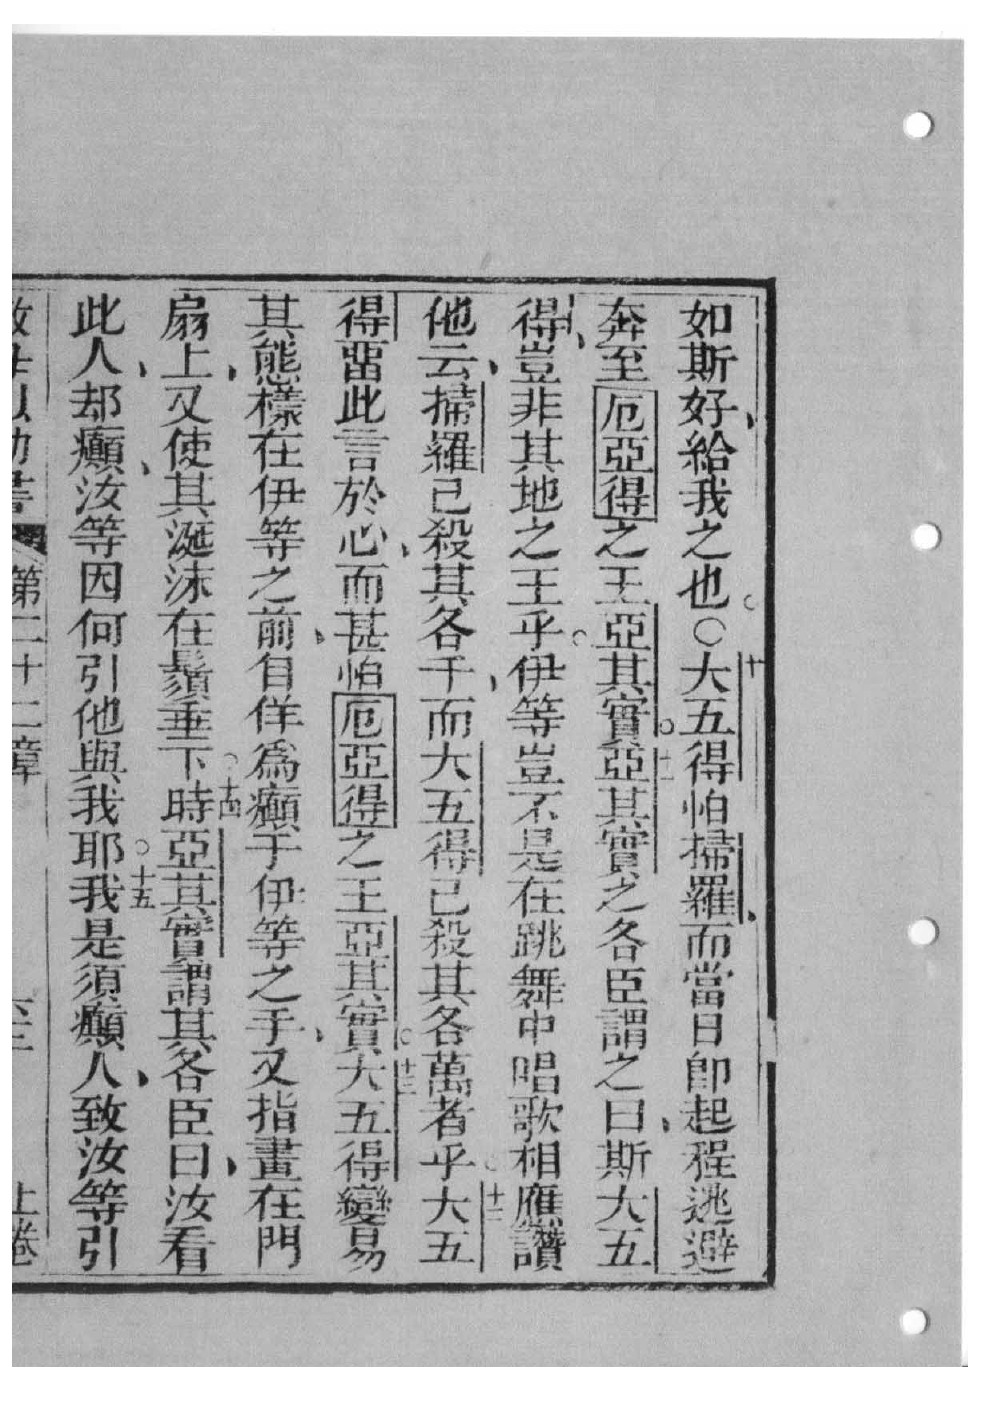 如斯好、給我之也。○十大五得怕掃羅、而當日卽起程逃避
奔至厄亞得之王亞其實。十一亞其實之各臣謂之曰、斯大五
得、豈非其地之王乎。伊等豈不是在跳舞中唱歌相應讚
他云、掃羅已殺其各千、而大五得已殺其各萬者乎。十二大五
得畱此言於心、而甚怕厄亞得之王亞其實。十三大五得變易
其態樣在伊等之前、自佯爲癲于伊等之手、又指畫在門
扇上、又使其涎沫在鬚垂下。十四時亞其實謂其各臣曰、汝看
此人、却癲、汝等因何引他與我耶。十五我是須癲人、致汝等引
第二十二章 上卷